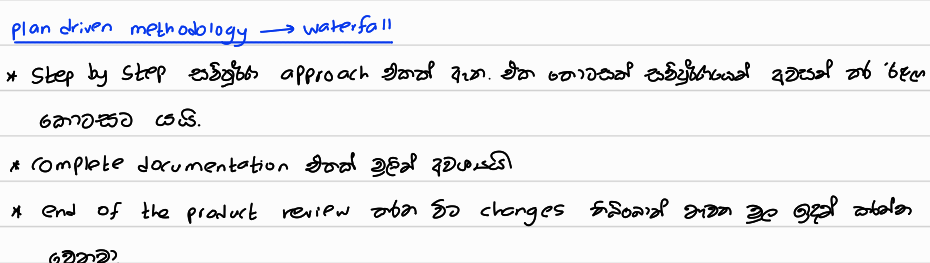 plan driven methodology → waterfall
* Step by step සම්පූර්ණ approach එකක් ඇත. එක කොටසක් සම්පූර්ණයෙන් අවසන් කර ඊළඟ
කොටසට යයි.
* complete documentation එකක් මුලින් අවශ්‍යයි
* end of the product review කරන විට changes තිබ්බොත් නැවත මුල ඉදන් කරන්න
වෙනවා